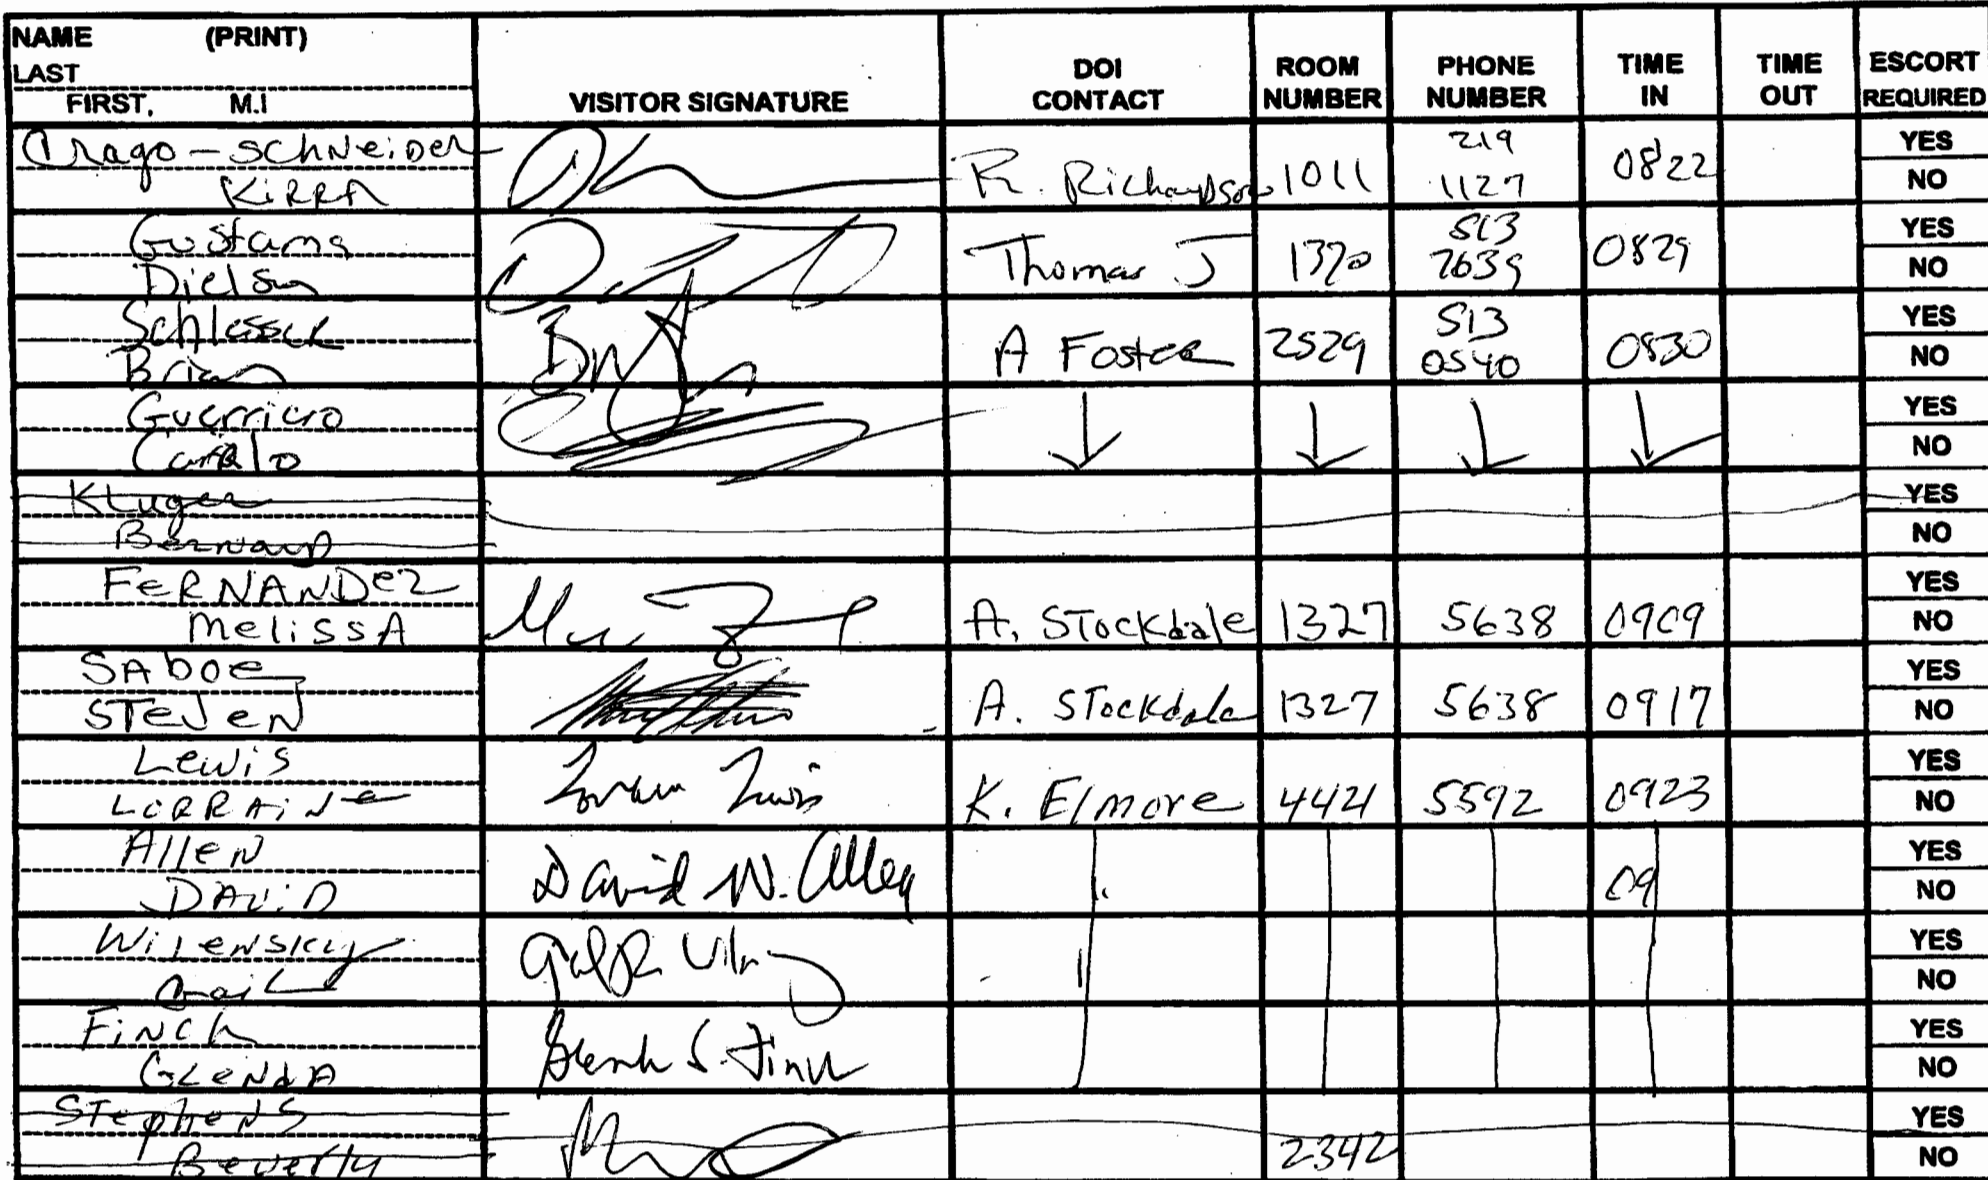 NAME (PRINT)
LAST
FIRST, M.I
VISITOR SIGNATURE
DOI CONTACT
ROOM NUMBER
PHONE NUMBER
TIME IN
TIME OUT
ESCORT REQUIRED
Crago-Schneider
Kirra
R. Richardson 1011 219 1127 0822
YES
NO
Gustama
Dielson
Thomas J 1320 513 7639 0829
YES
NO
Schlosser
Brian
A Foster 2529 513 0540 0830
YES
NO
Guerriero
Carlo
↓ ↓ ↓ ↓
YES
NO
Kluger
Bernard
YES
NO
FERNANDEZ
MelissA
A. Stockdale 1327 5638 0909
YES
NO
SAboe
STeven
A. Stockdale 1327 5638 0917
YES
NO
Lewis
LORRAiNe
K. Elmore 4421 5592 0923
YES
NO
AlleN
DAViD
David W. Allen
09
YES
NO
Wilensky
Gail
YES
NO
FiNCh
GLeNdA
Glenda S. Finch
YES
NO
STepheNS
Beverly
2342
YES
NO